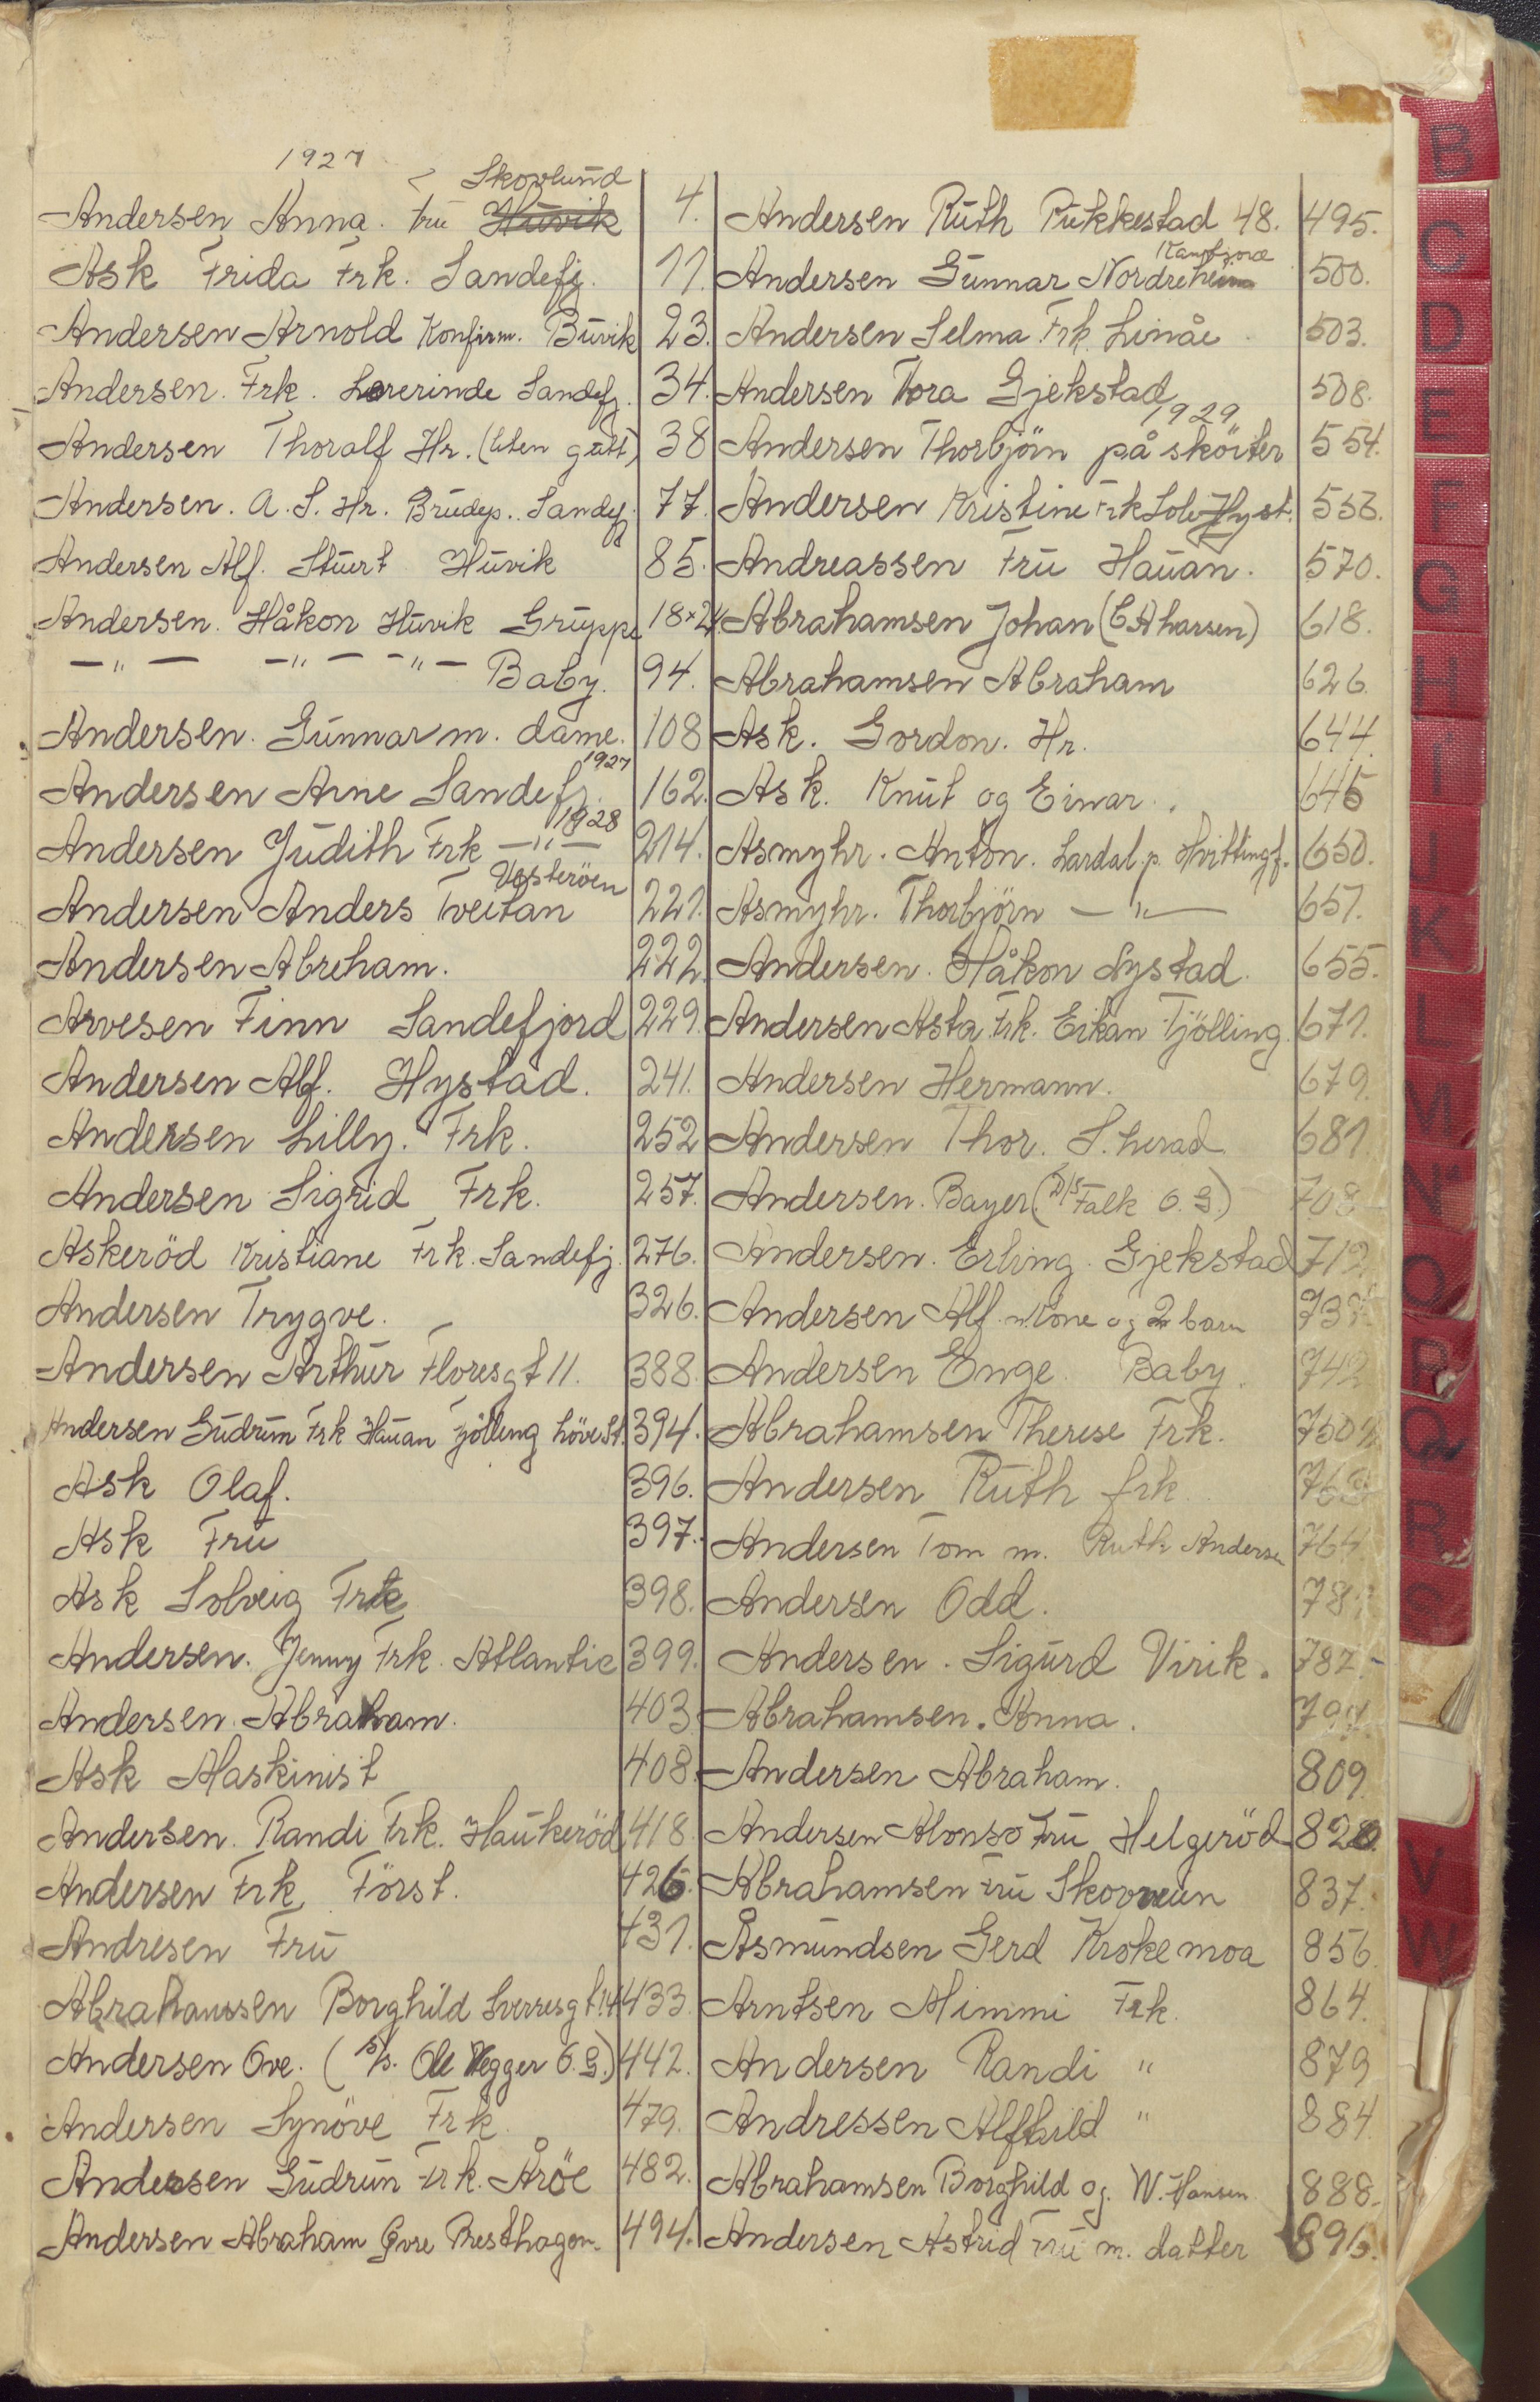 1927
Skovlund
Andersen Anna. fru Huvik 4.
Ask Frida Frk. Sandefj. 11.
Andersen Arnold Konfirm. Buvik 23.
Andersen. Frk. Lærerinde Sandefj. 34.
Andersen Thoralf Hr. (liten gutt) 38
Andersen. A. S. Hr. Brudep. Sandefj. 77.
Andersen Alf. Stuert Huvik 85.
Andersen. Håkon Huvik Gruppe 18×24.
—"— —"— —"— Baby. 94.
Andersen. Gunnar m. dame. 108
1927
Andersen Arne Sandefj. 162.
1928
Andersen Judith Frk —"— 214.
Vesteröen
Andersen Anders Tveitan 221.
Andersen Abreham. 222.
Arvesen Finn Sandefjord 229.
Andersen Alf. Hystad. 241.
Andersen Lilly. Frk. 252
Andersen Sigrid Frk. 257.
Askeröd Kristiane Frk. Sandefj. 276.
Andersen Trygve. 326.
Andersen Arthur Floresgt 11. 388.
Andersen Gudrun Frk Hauan Tjölling höve St. 394.
Ask Olaf. 396.
Ask Fru 397.
Ask Solveig Frk 398.
Andersen. Jenny Frk. Atlantic 399.
Andersen. Abraham. 403
Ask Maskinist 408.
Andersen. Randi Frk. Haukeröd 418
Andersen Frk Först. 426.
Andresen Fru 431.
Abrahamsen Borghild Sverresgt 14 433
Andersen Ove. (S/s. Ole Wegger Ö.G.) 442.
Andersen Synöve Frk. 479.
Andersen Gudrun Frk. Åröe 482.
Andersen Abraham Övre Presthagen. 494.
Andersen Ruth Pukkestad 48. 495.
Kamfjord
Andersen Gunnar Nordreheim 500.
Andersen Selma Frk. Linåe 503.
Andersen Thora Gjekstad 508.
1929
Andersen Thorbjörn på sköiter 554.
Andersen Kristine Frk Hyst.
Andreassen Fru Hauan. 570.
Abrahamsen Johan 618.
Abrahamsen Abraham 626.
Ask. Gordon. Hr. 644.
Ask. Knut og Einar. 645
Asmyhr. Anton. Lardal p. Hvittingf. 650.
Asmyhr. Thorbjörn —"— 651.
Andersen. Håkon Nystad. 655.
Andersen Asta Frk. Eikan Tjölling. 671.
Andersen Hermann. 679.
Andersen Thor. S. herad 681.
Andersen. Bayer (D/S Falk Ö.G.) 708
Andersen. Erling. Gjekstad 712.
Andersen Alf m Kone og 2 barn
Andersen Enge. Baby. 742
Abrahamsen Therese Frk. 750
Andersen Ruth frk.
Andersen Tom m. Ruth Andersen 764
Andersen Odd.
Andersen. Sigurd Virik. 782.
Abrahamsen. Anna.
Andersen Abraham. 809.
Andersen Alonso Fru Helgeröd 820.
Abrahamsen Fru 837.
Åsmundsen Gerd Krokemoa 856.
Arntsen Mimmi Frk. 864.
Andersen Randi " 879
Andressen Alfhild " 884.
Abrahamsen Borghild og. W. Hansen 888.
Andersen Astrid Fru m. datter 896.
B
C
D
E
F
G
H
I
J
K
L
M
N
O
P
Q
R
S
V
W